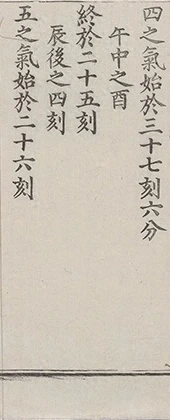 四之氣始於三十七刻六分
午中之酉
終於二十五刻
辰後之四刻
五之氣始於二十六刻